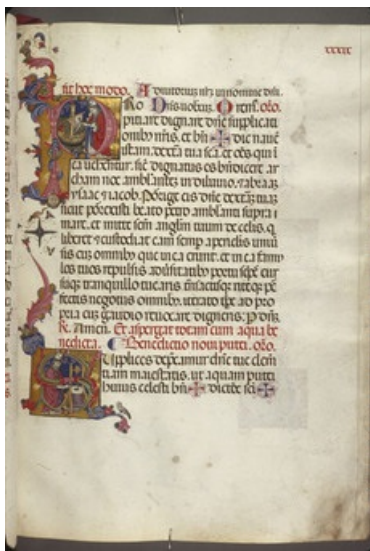 xxxix
fit hoc modo. Adiutoriuz nrz in nomine dni.
Ro Dns uobcuz. Orem9. oro.
pitiare dignare dne supplicati
onib9 nris. et bn ✠ dic naue
istam. dextera tua sca. et oes qui i
ea uehentur. sic dignatus es bndicere ar
cham noe ambulantez in diluuio. abraaz
ysaac et iacob. Porrige eis dne dexteraz tuaz
sicut porrexisti beato petro ambulanti supra
mare. et mitte scm anglum tuum de celis. q
liberet et custodiat eam semp a periculis
sis cuz omnib9 que in ea erunt. et in ea famu
los tuos repulsis aduersitatib9 portu semp
tuiqz tranquillo tuearis. transactisqz
fectis negotiis omnib9. iterato tpe ad pro
pria cuz gaudio reuocare digneris. p dnz.
R. Amen. Et aspergat totam cum aqua be
nedicta. Benedictio noui putei. oro.
Supplices deprecamur dne tue clem
tiam maiestatis. ut aquam putei
huius celesti bn ✠ dictoe sci ✠